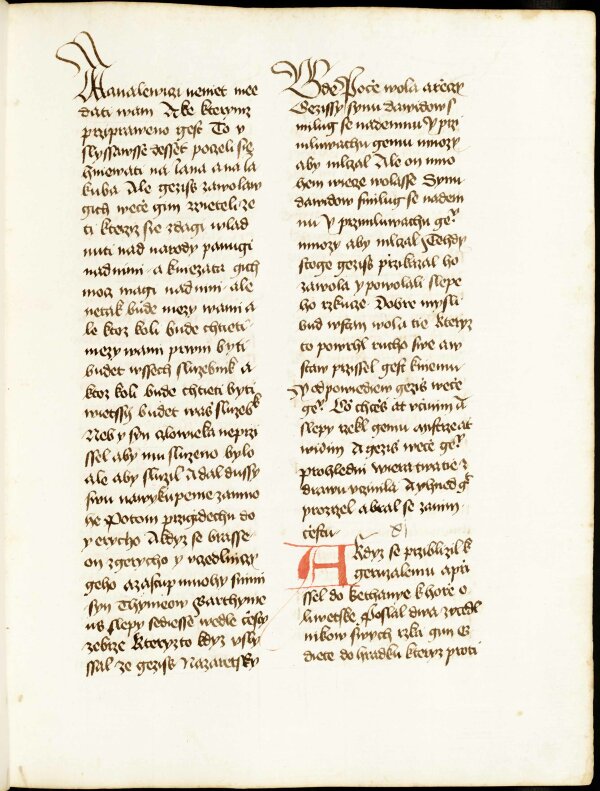 A na lewiczi nemet mee
dati wam Ale kterymz
przypraweno gest To y
slyssawsse desset poczeli sie
hniewati na Jana a na Ja
kuba Ale gezis zawolaw
gich wece gim wzieteli ze
ti kterziz sie zdagi wlad
nuti nad narody panugi
nad nimi a kniezata gich
moc magi nad nimi ale
netak bude mezy wami a
le ktoz koli bude chtieti
mezy wami prwni byti
budet wssech sluzebnik a
ktoz koli bude chtieti byti
wietssy budet was sluzebk
Neb y syn czloweka neprzi
ssel aby mu sluzeno bylo
ale aby sluzil A dal dussy
swu na wykupenie za mno
he Potom przigidechu do
y erycho A kdyz se brasse
on z gerycho y vczedlniczy
geho a zastup mnohy synn
syn Thymeow Barthyme
us slepy sediesse wedle czesty
zebrze Kteryzto kdyz vsly
ssal ze gezis Nazaretsky
Bde Pocze wola a rzeczy
Gezissy synu dawidow s
milug se nademnu Y przi
mluwachu gemu mnozy
aby mlczal Ale on mno
hem wieze wolasse Synu
dawidow smilug se nadem
nu Y przimluwachu gem
mnozy aby mlczal Tehdy
stoge gezis przikazal ho
zawola y powolali slepe
ho rzkuze Dobre mysli
bud wstan wola tie Kteryz
to powrhl rucho swe a w
staw przissel gest k niemu
Y odpowiediew gezis wece
gem Co chces at vczinim A
slepy rzekl gemu mistrze at
widim A gezis wece gem
prohledni wiera twa tie z
drawu vczinila A yhned g
prozrzel a bral se za nim
czestu
A Kdyz se prziblizil k
geruzalemu a przi
ssel do bethanye k horze o
liwetske poslal dwa z vczedl
nikow swych rzka gim G
diete do hradku kteryz proti